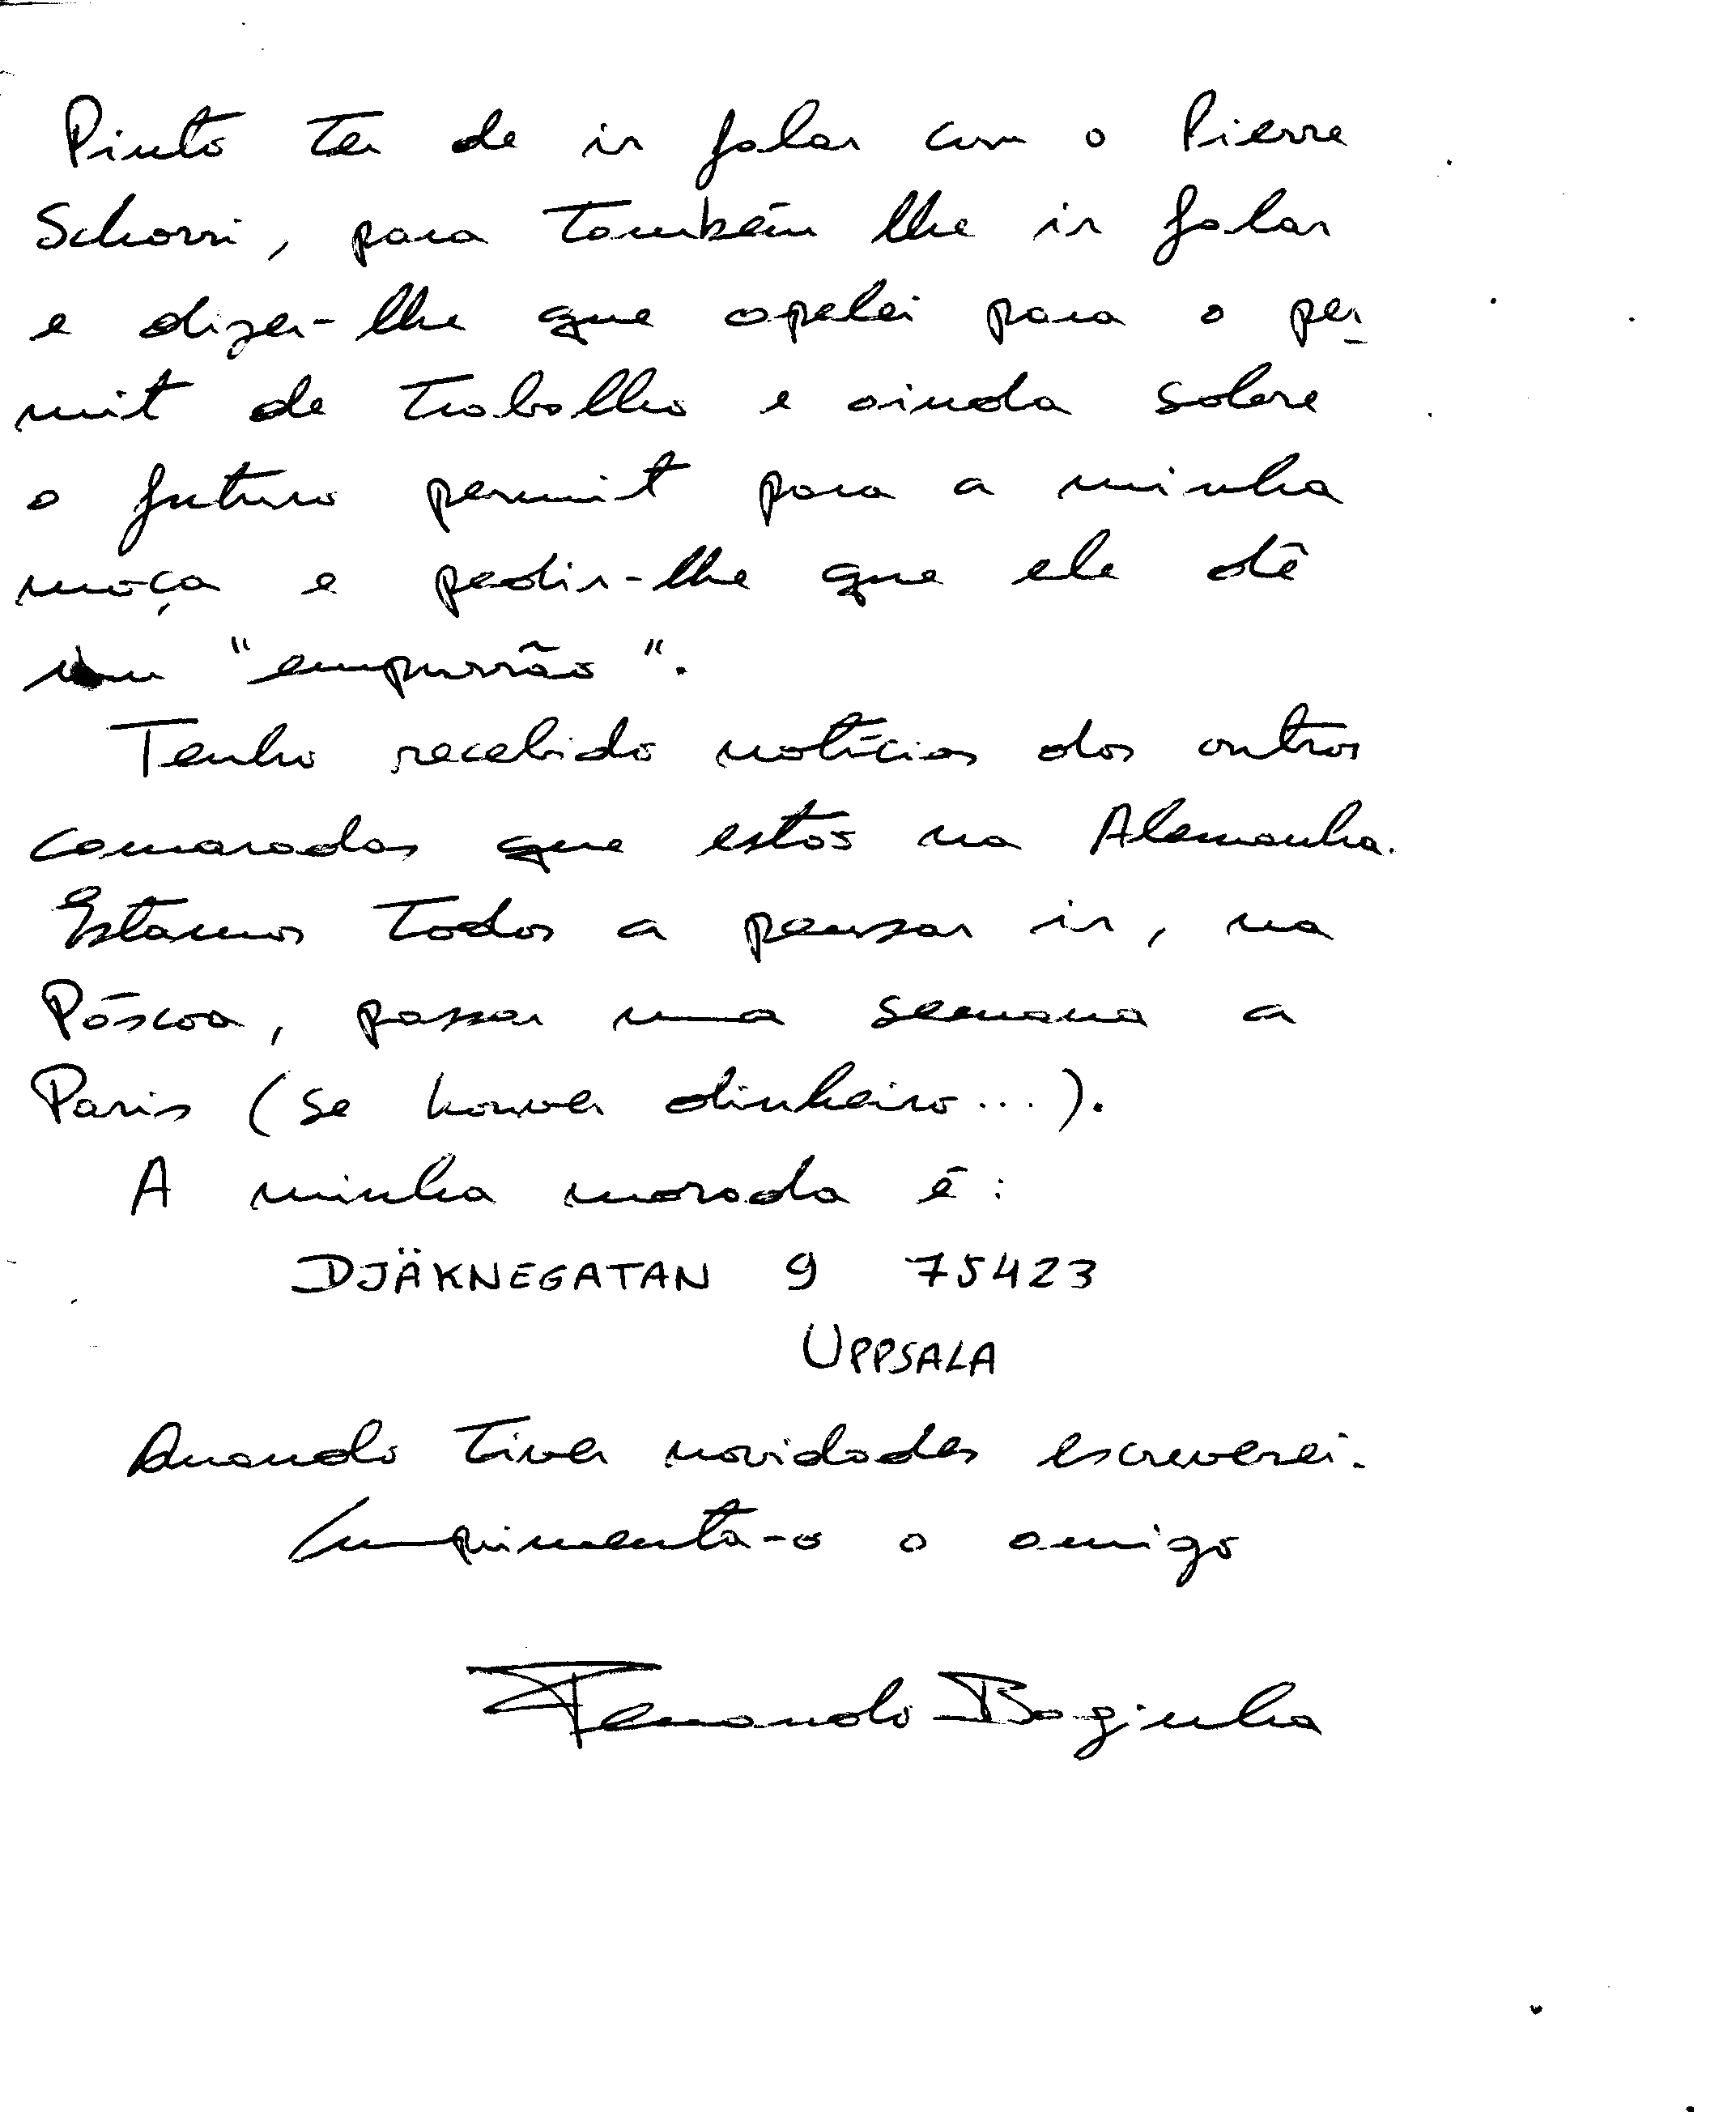 Pinto ter de ir falar com o Pierre
Schorri, para também lhe ir falar
e dizer-lhe que apelei para o per
mit de trabalho e ainda sobre
o futuro permit para a minha
moça e pedir-lhe que ele dê
um "empurrão".
Tenho recebido notícias dos outros
camaradas que estão na Alemanha.
Estamos todos a pensar ir, na
Páscoa, passar uma semana a
Paris (se houver dinheiro...).
A minha morada é:
DJÄKNEGATAN 9 75423
UPPSALA
Quando tiver novidades escreverei.
Cumprimenta-o o amigo
Fernando Baginha